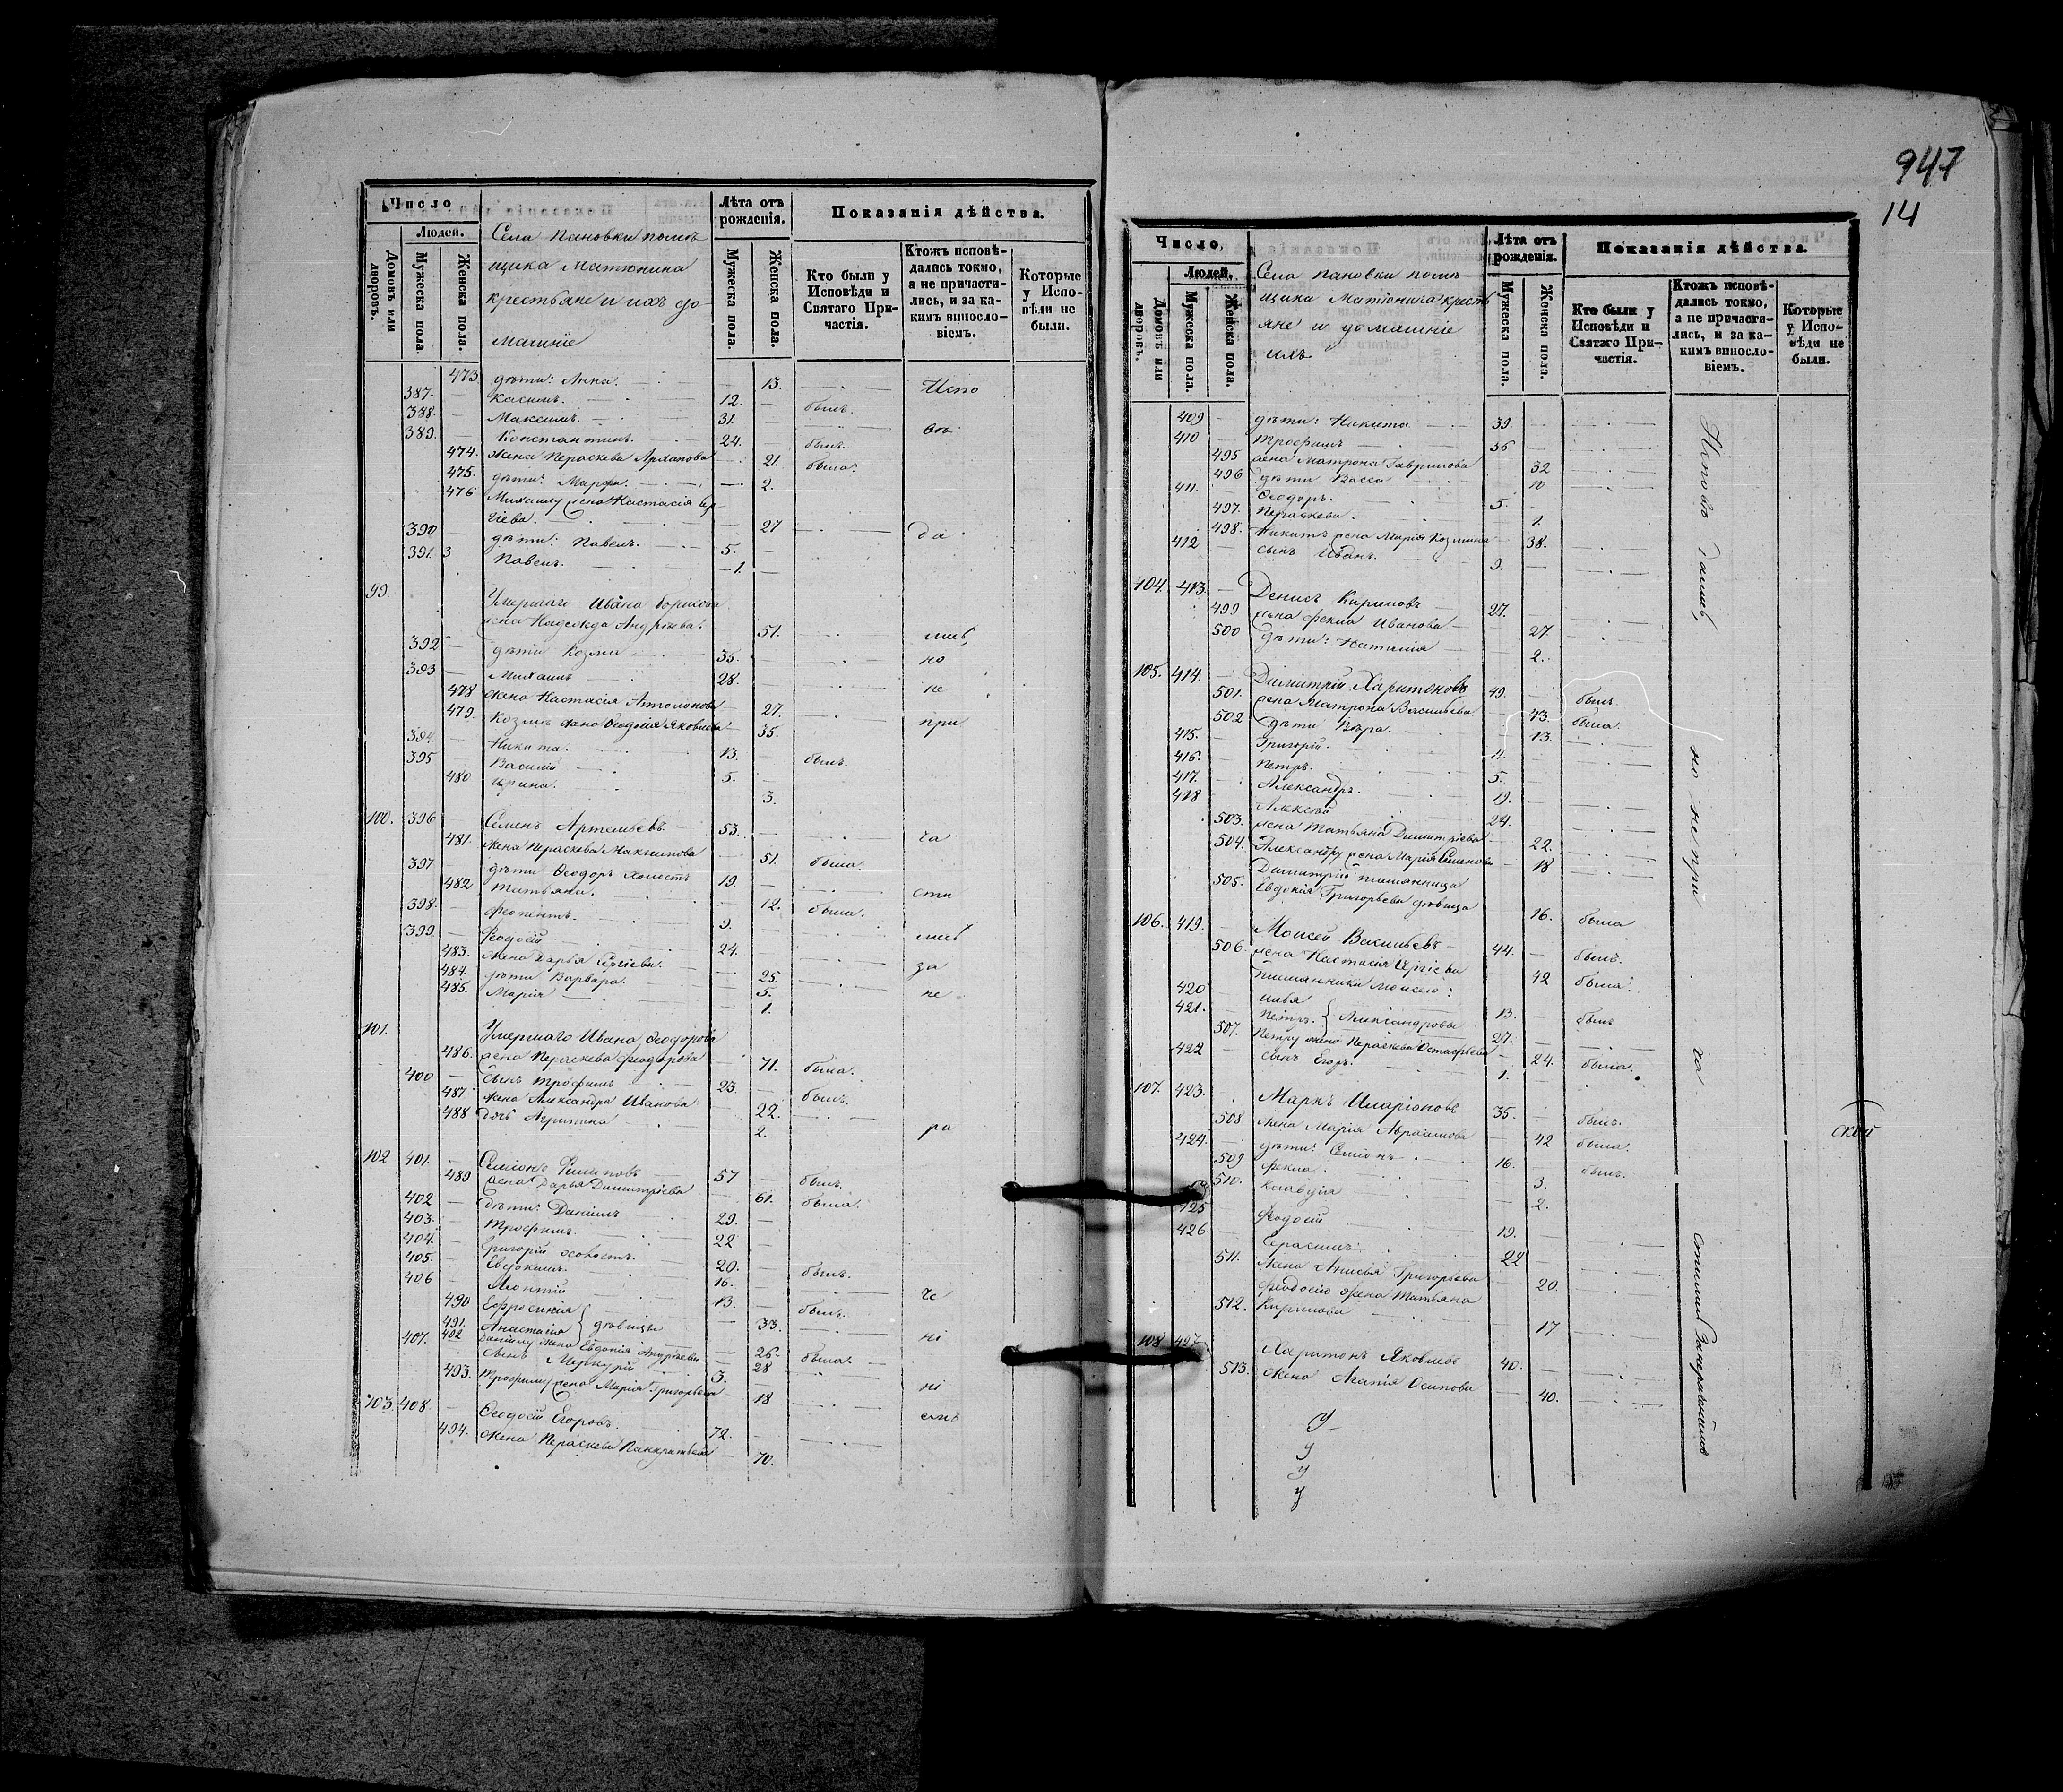 Число
Людей.
Домовъ или дворовъ.
Мужеска пола.
Женска пола.
Села Пановки помѣ
щика Матюнина
крестьяне и ихъ до
машніе
Лѣта отъ рожденія.
Мужеска пола.
Женска пола.
Показанія дѣйства.
Кто были у Исповѣди и Святаго Причастія.
Ктожъ исповѣдались токмо, а не причастились, и за какимъ винословіемъ.
Которые у Исповѣди не были.
473. дѣти: Анна. 13. Испо
387. 12. былъ.
388. Максимъ. 31. вѣ
389. Константинъ. 24. былъ.
474. жена Пераскева 21. была.
475. дѣти: Марѳа. 2.
476 Михаилу жена Настасія Сер
гіева. 27 да
390 дѣти: Павелъ. 5.
391. 3 Павелъ. 1.
99. Умершаго Ивана Борисова
жена Надежда Андрѣева. 51. лись,
392 дѣти Козма 35. но
393 Михаилъ 28. не
478 жена Настасія 27. при
479. Козмы жена Ѳеодосія Яковлева 35.
394. Никита. 13. былъ.
395 Василій 5.
480 Ирина. 3.
100. 396 Семенъ Артемьевъ 53. ча
481. жена Пераскева Максимова 51. была.
397 дѣти Ѳеодоръ холостъ 19. сти
482 Татьяна. 12. была.
398. 9. лись
399. Ѳеодосій 24. за
483. жена Дарья Сергіева. 25. не
484. дѣти Варвара. 5.
485. Марія 1.
101. Умершаго Ивана Ѳеодорова
486. жена Пераскева Ѳеодорова 71. была.
400 сынъ Трофимъ 23. былъ.
487 жена Александра Иванова 22.
488 дочь Агрипина 2. ра
102 401. Семіонъ Филиповъ 57 былъ.
489 жена Дарья Димитріева 61. была.
402 дѣти: Даніилъ 29.
403. Трофимъ. 22
404. Григорій холостъ. 20. былъ.
405. Евдокимъ. 16. че
406 Леонтій 13. былъ.
490 Ефросинія 33. ні
491. Анастасія } дѣвицы 26. была.
492 Даніилу жена Евдокія Андрѣева 28
407. сынъ Меркурій 3. ні
493. Трофиму жена Марія Григорьева 18
103. 408. Ѳеодосій Егоровъ. 72. емъ
494. жена Пераскева Панкратьева 70.
947
14
Число
Людей.
Домовъ или дворовъ.
Мужеска пола.
Женска пола.
Села Пановки помѣ
щика Матюнина кресть
яне и домашніе
ихъ
Лѣта отъ рожденія.
Мужеска пола.
Женска пола.
Показанія дѣйства.
Кто были у Исповѣди и Святаго Причастія.
Ктожъ исповѣдались токмо, а не причастились, и за какимъ винословіемъ.
Которые у Исповѣди не были.
409 дѣти: Никита 39.
410 Трофимъ 36
495 жена Матрона Гаврилова 32
496 дѣти Васса 10
411. Ѳеодоръ. 5.
497. Пераскева. 1.
498. Никиты жена Марія Козмина 38.
412 сынъ Иванъ. 9.
104. 413. Денисъ Кириловъ 27.
499 жена Ѳекла Иванова 27.
500 дѣти: Наталія 2.
105. 414. Димитрій Харитоновъ 49. былъ
501. жена Матрона Васильева 43. была.
502 дѣти Вѣра. 13.
415. Григорій. 11.
416. Петръ. 5.
417. Александръ. 19.
418 Алексѣй 24.
503. жена Татьяна Димитріева 22.
504. Александру жена Марія Семенова 18
Димитрій племянница
505. Евдокія Григорьева дѣвица 16. была
106. 419. Моисей Васильевъ 44. былъ.
506. жена Настасія Сергіева 42 была.
племянники Моисею:
420 Илья 13. былъ
421. Петръ. } Александровы 27.
507. Петру жена Пераскева 24. была.
422 сынъ Егоръ. 1.
107. 423. Маркъ Иларіоновъ 35. былъ.
508 жена Марія Абраамова 42 была.
424. дѣти: Семіонъ. 16. былъ.
509 Ѳекла. 3.
510. Клавдія 2.
425 Ѳеодосій 19.
426. Герасимъ 22
511. жена Анисья Григорьева 20.
Ѳеодосію жена Татьяна
512. Кирилова 17.
108 427. Харитонъ Яковлевъ 40.
513. жена Агапія Осипова 40.
У
У
У
У
Исповѣдались, но не при ча стились
ской